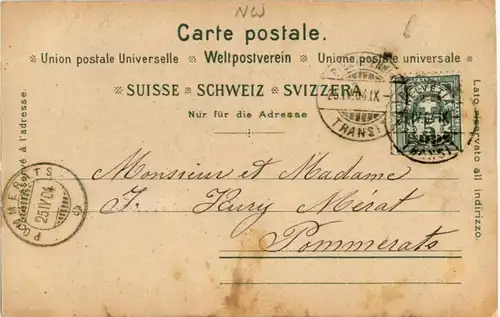 NW
Carte postale.
Union postale Universelle Weltpostverein Unione postale universale
SUISSE SCHWEIZ SVIZZERA
Nur für die Adresse
25.IV.04.IX
TRANSIT
HELVETIA
Lato riservato all indirizzo.
réservé à l'adresse.
POMMERATS
25.IV.04
Monsieur et Madame
J. Fury Mérat
Pommerats